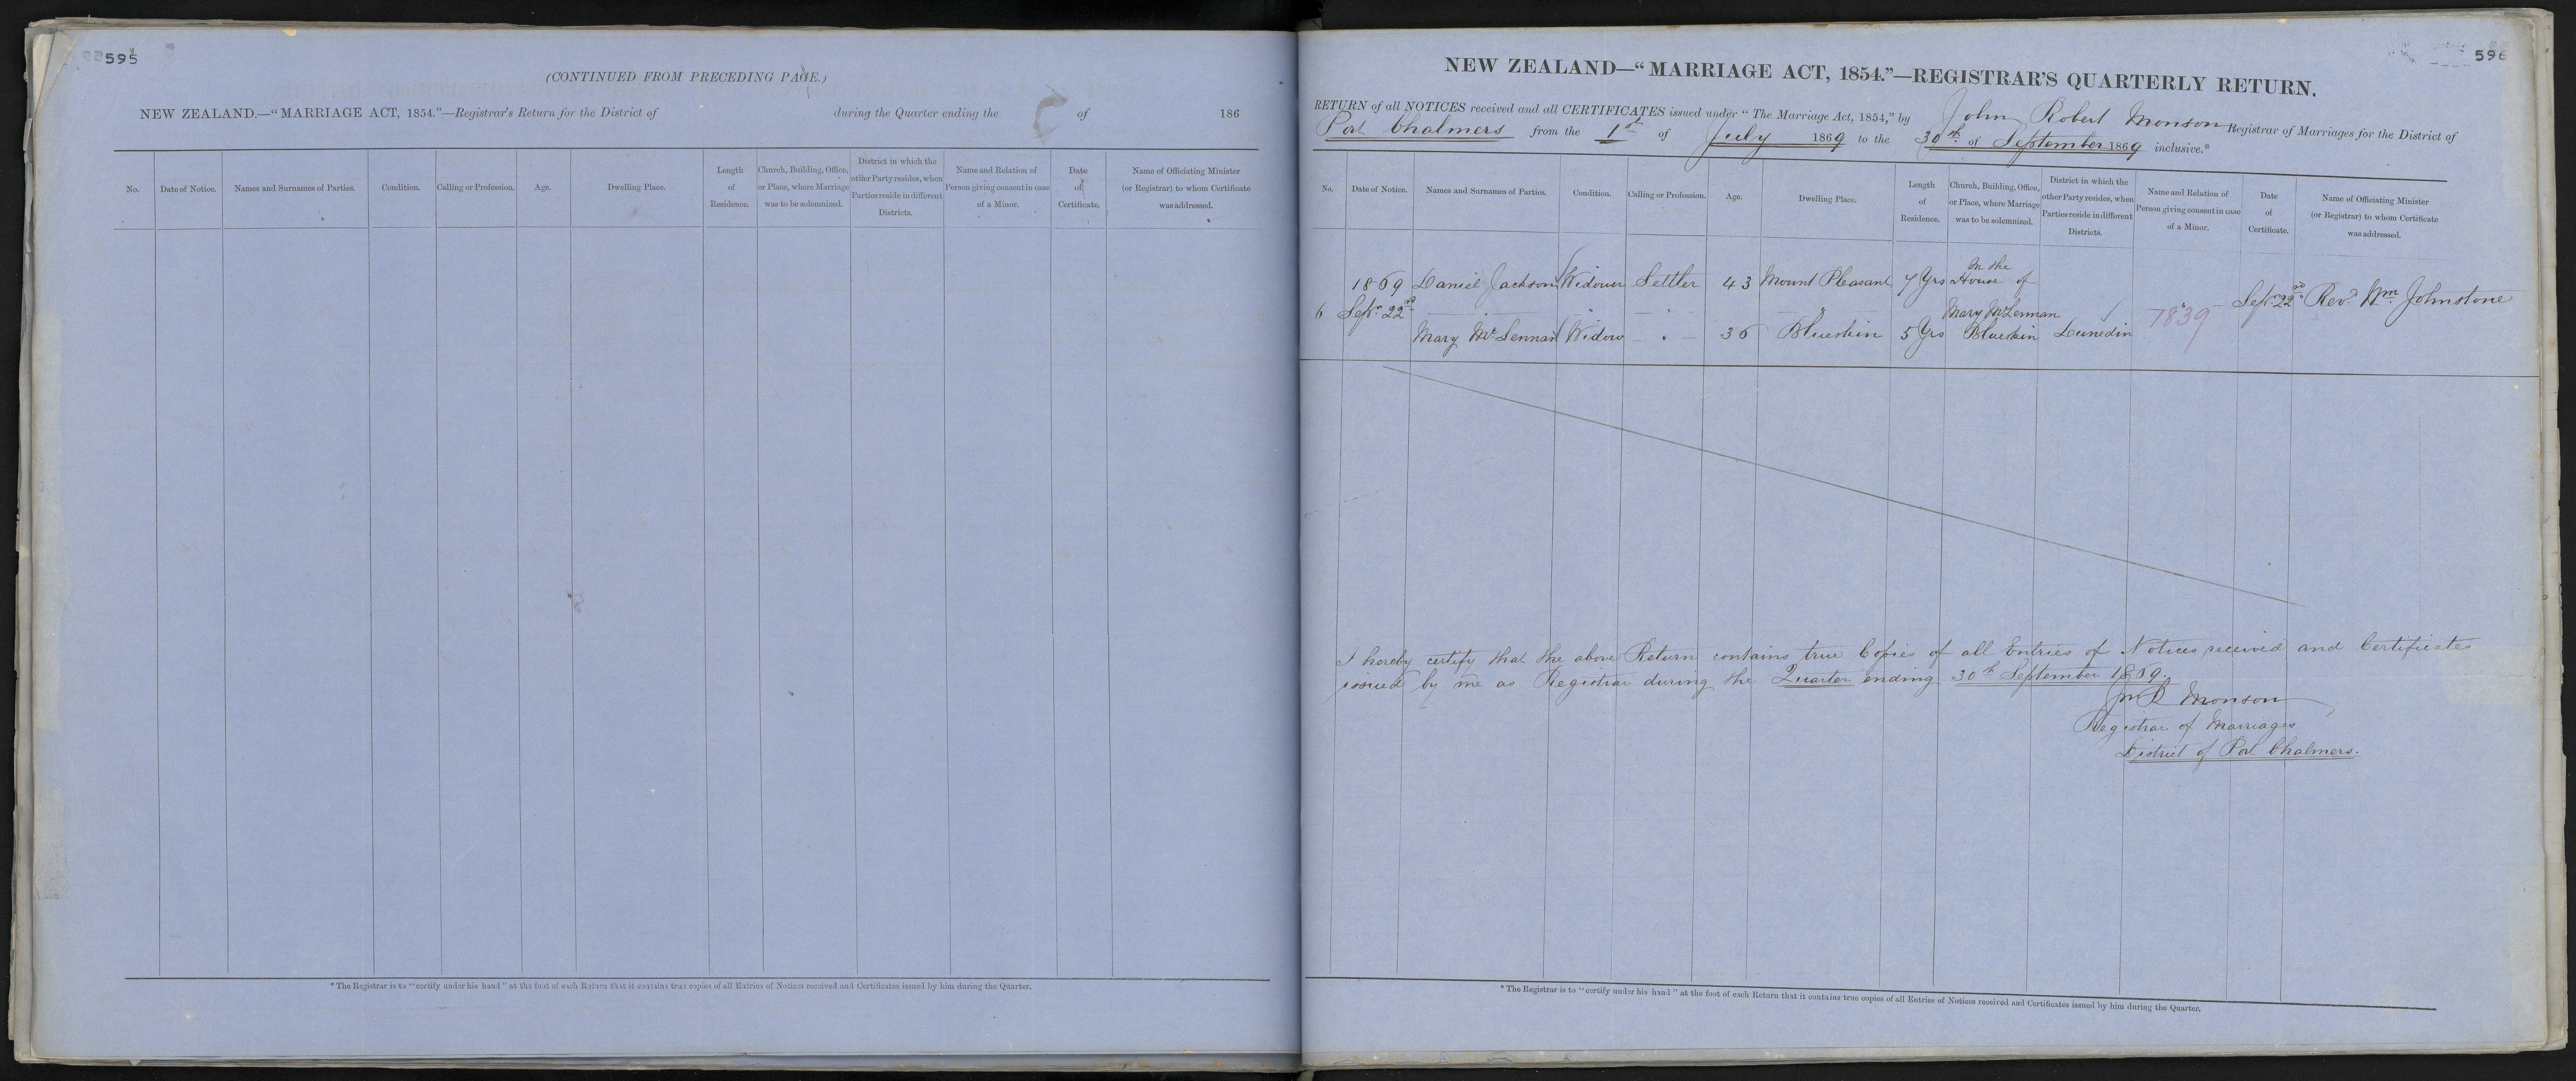 595
(CONTINUED FROM PRECEDING PAGE.)
NEW ZEALAND.—"MARRIAGE ACT, 1854."—Registrar's Return for the District of during the Quarter ending the of 186
No.
Date of Notice.
Names and Surnames of Parties.
Condition.
Calling or Profession.
Age.
Dwelling Place.
Length
of
Residence.
Church, Building, Office,
or Place, where Marriage
was to be solemnized.
District in which the
other Party resides, when
Parties reside in different
Districts.
Name and Relation of
Person giving consent in case
of a Minor.
Date
of
Certificate.
Name of Officiating Minister
(or Registrar) to whom Certificate
was addressed.
* The Registrar is to "certify under his hand" at the foot of each Return that it contains true copies of all Entries of Notices received and Certificates issued by him during the Quarter.
596
NEW ZEALAND—"MARRIAGE ACT, 1854."—REGISTRAR'S QUARTERLY RETURN.
RETURN of all NOTICES received and all CERTIFICATES issued under "The Marriage Act, 1854," by John Robert Monson Registrar of Marriages for the District of
Port Chalmers from the 1st of July 1869 to the 30th of September 1869 inclusive.*
No.
Date of Notice.
Names and Surnames of Parties.
Condition.
Calling or Profession.
Age.
Dwelling Place.
Length
of
Residence.
Church, Building, Office,
or Place, where Marriage
was to be solemnized.
District in which the
other Party resides, when
Parties reside in different
Districts.
Name and Relation of
Person giving consent in case
of a Minor.
Date
of
Certificate.
Name of Officiating Minister
(or Registrar) to whom Certificate
was addressed.
6
1869
Sepr. 22nd
Daniel Jackson Widower Settler 43 Mount Pleasant 7 Yrs
Mary McLennan Widow 36 Blueskin 5 Yrs
In the
House of
Mary McLennan
Blueskin
Dunedin
7839
Sepr. 22nd
Revd. Wm. Johnstone
I hereby certify that the above Return contains true Copies of all Entries of Notices received and Certificates
issued by me as Registrar during the Quarter ending 30th September 1869.
Jn R Monson
Registrar of Marriages
District of Port Chalmers.
* The Registrar is to "certify under his hand" at the foot of each Return that it contains true copies of all Entries of Notices received and Certificates issued by him during the Quarter.